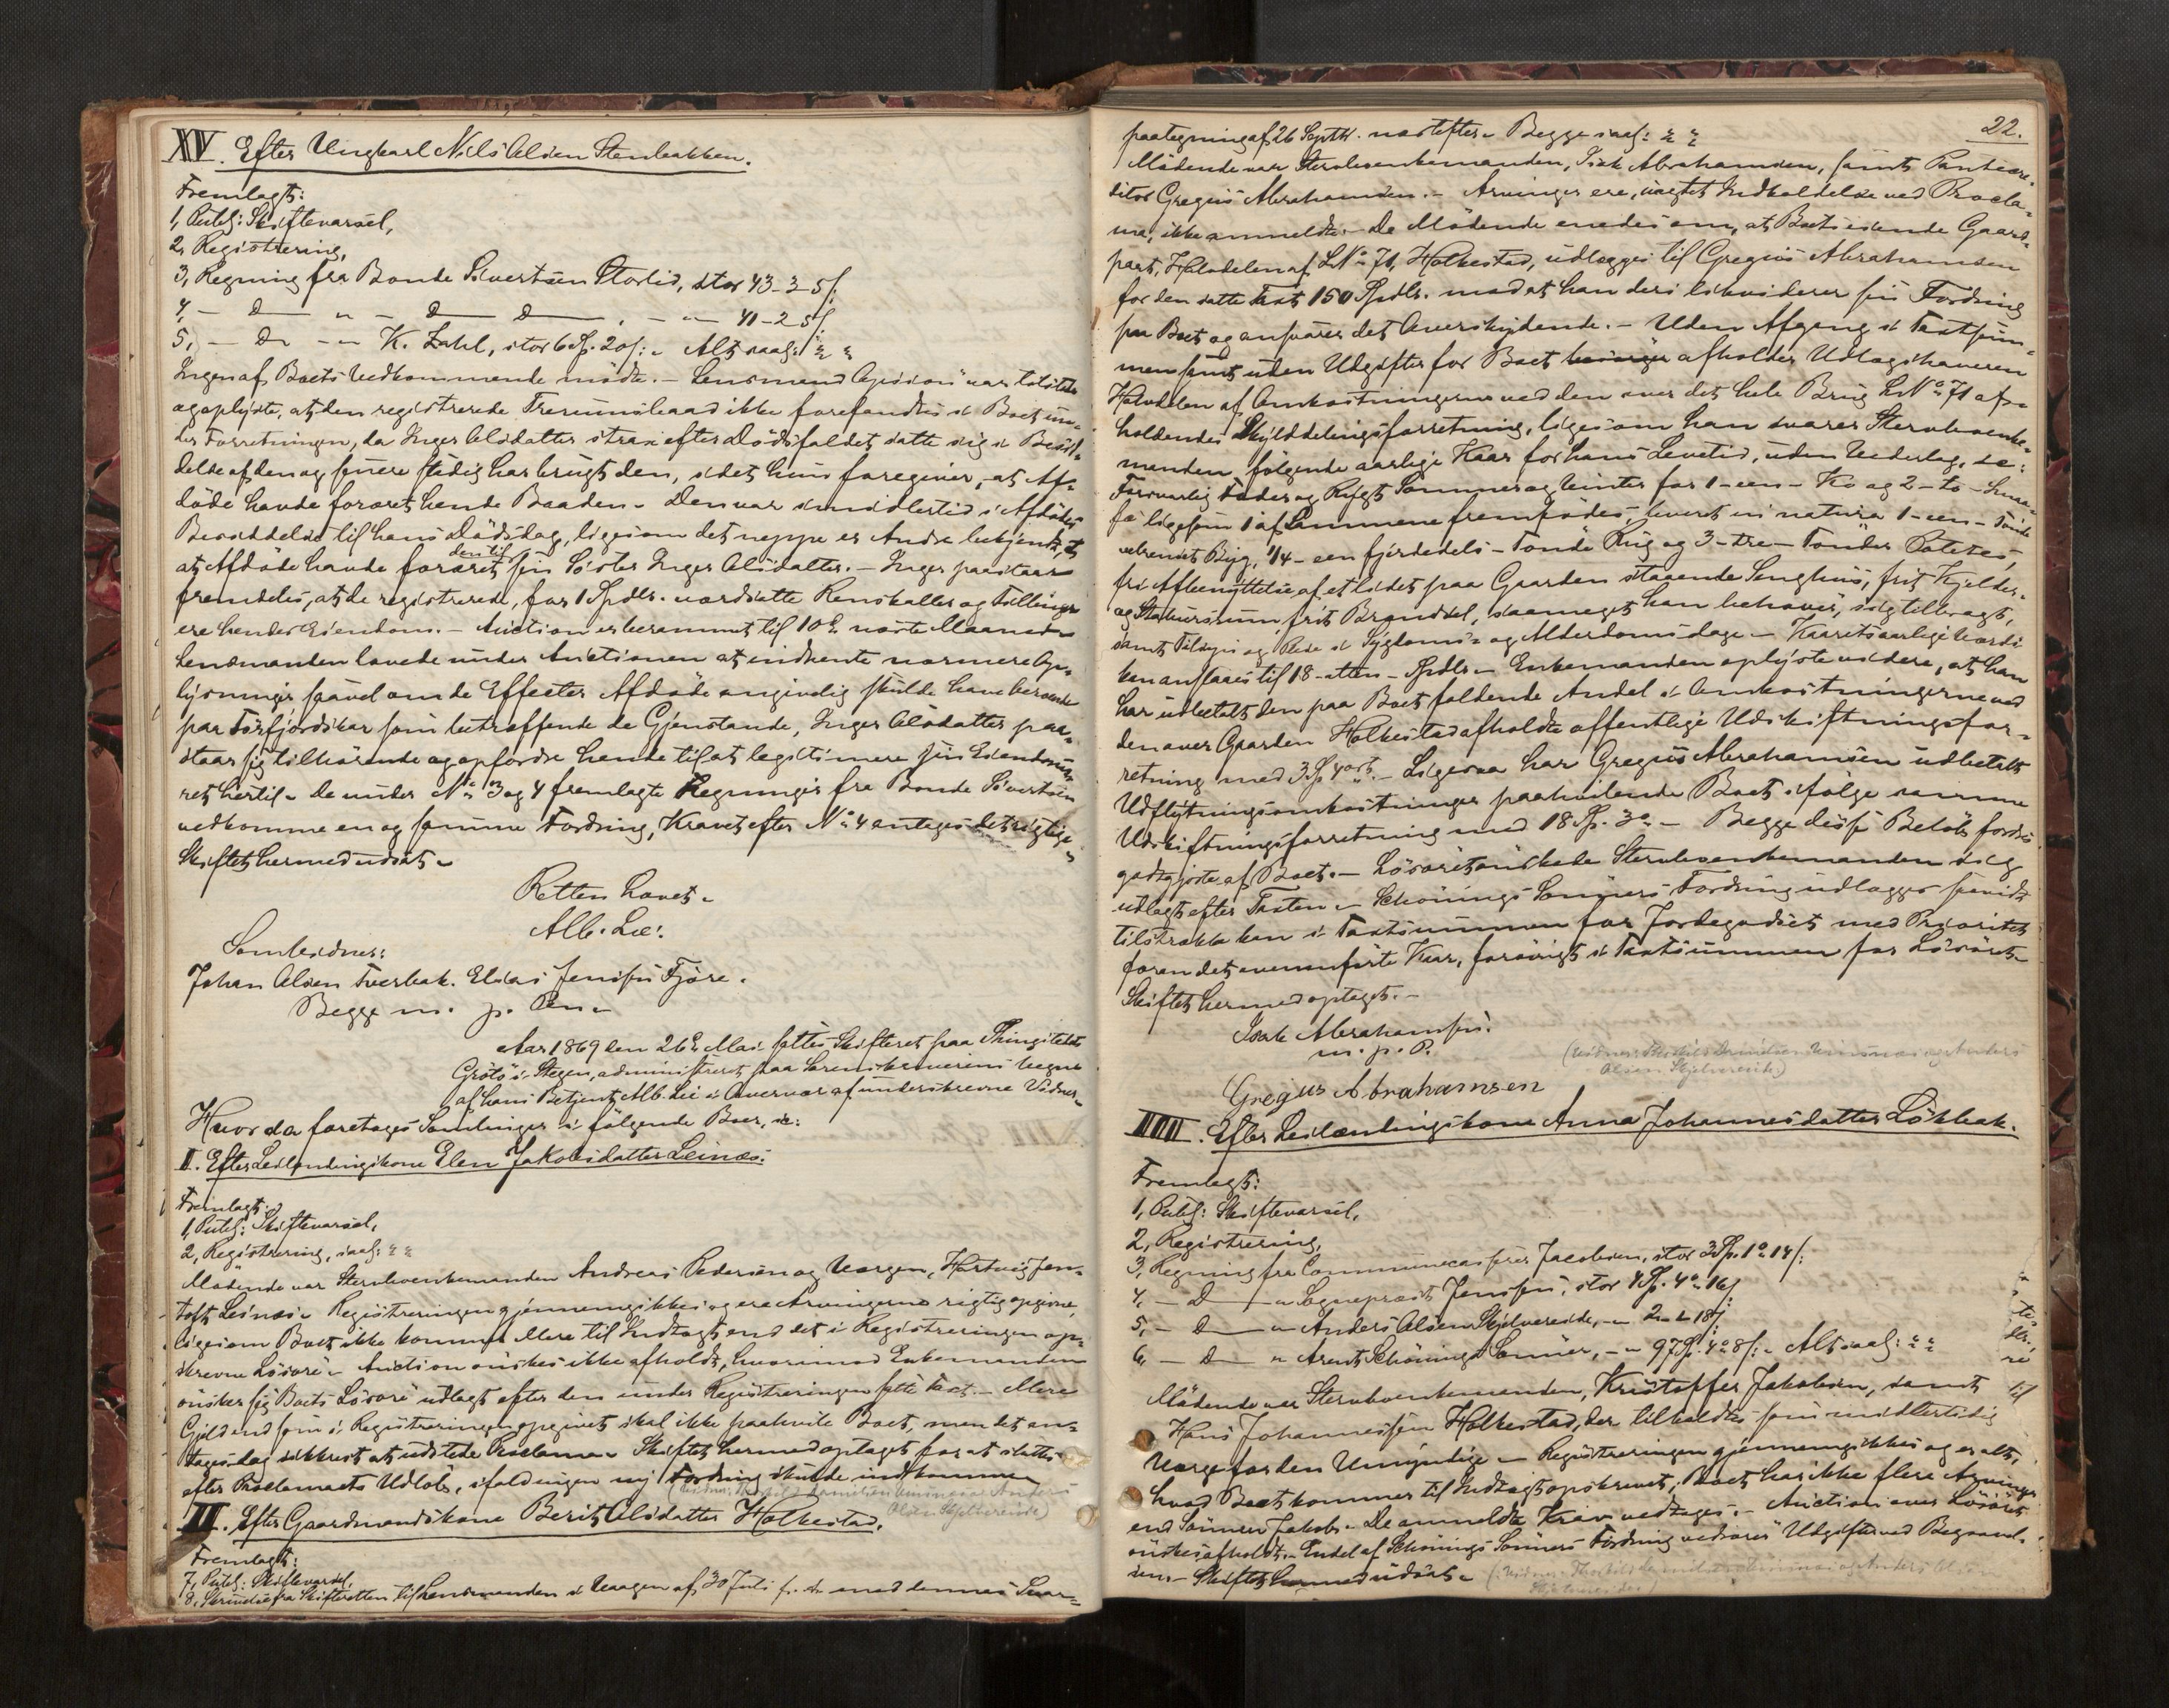 XV. Efter Ungkarl Nils Olsen Stenbakken.
Fremlagt:
1, Publ: Skiftevarsel,
2, Registrering,
3, Regning fra Bonde Sivertsen Storlid, stor 43-3-5/:
4, - D - D D - 41-2-5/:
5, - Do - K. Zahl, stor 6 Sp. 20/: Alt saal:
Ingen af Boets Vedkommende mödte. - Lensmand var tilstede
og oplyste, at den registrerede Treromsbaad ikke forefandtes i Boet un-
der Forretningen, da Inger Olsdatter strax efter Dödsfaldet satte sig i Besid-
delse af den og senere stedig har brugt den, idet hun foregiver, at Af-
döde havde foræret hende Baaden. Den var imidlertid i Afdödes
Besiddelse til hans Dödsdag, ligesom det neppe er Andre bekjendt,
at Afdöde havde foræret den til sin Söster Inger Olsdatter. - Inger paastaar
fremdeles, at de registrerede, for 1 Spdlr. værdsatte Renskaller og Fillinger
ere hendes Eiendom. - Auction er berammet til 10de næste Maaned
Lensmanden lovede under Auctionen at indhente nærmere Op-
lysninger saavel om de Effecter Afdöde angivelig skulde have beroende
paa Törfjordskar som betræffende de Gjenstande, Inger Olsdatter paa-
staar sig tilhörende og opfordre hende til at legitimere sin Eiendoms-
ret hertil. De under No 3 og 4 fremlagte Regninger fra Bonde Sivertsen
vedkomme en og samme Fordring, Kravet efter No 4 antages det rigtige
Skiftet hermed udsat.
Retten hævet.
Alb. Lie.
Samleidner:
Johan Olsen Tverbak. Elias Jenssen Fjöre.
Begge m. p. Pen.
Aar 1869 den 26de Mai sattes Skifteret paa Thingstedet
Grötö i Stegen, administreret paa Sorenskriverens Vegne
af hans Betjent Alb. Lie i Overvær af underskrevne Vidner.
Hvor da foretages Samlinger i fölgende Boer, sc:
II. Efter Leilændingskone Elen Jakobsdatter Leines:
Fremlagt:
1, Publ: Skiftevarsel,
2, Registrering, saal:
Mödende var Stervboenkemanden Andreas Pedersen og Værgen, Hartvig Jen-
toft Leines. Registreringen gjennemgikkes og ere Arvingerne rigtig opgivne,
ligesom Boet ikke kommer Mere til Indtægt end det i Registreringen op-
skrevne Lösöre. Auction önskes ikke afholdt, hvorimod Enkemanden
önsker sig Boets Lösöre udlagt efter den under Registreringen satte Taxt. - Mere
Gjeld end som i Registreringen opgivet skal ikke paahvile Boet, men det an-
tages dog sikkrest at udstede Proclama. Skiftet hermed optaget for at sluttes
efter Proclamaets Udlöb, ifald ingen ny Fordring skulde indkomme
Olsen Skjelvereide)
III. Efter Gaardmandskone Berit Olsdatter Holkestad.
Fremlagt:
7, Publ: Skiftevarsel,
8, Skrivelse fra Skifteretten til Lensmanden i Vaagen af 30 Juli f. A. med dennes Svar-
22.
paategning af 26 Septbr. næstefter. Begge saal:
Mödende var Stervboenkemanden, Isak Abrahamsen, samt Pantecre-
ditor Gregus Abrahamsen. - Arvinger ere, uagtet Indkaldelse ved Procla-
ma, ikke anmeldte. De Mödende enedes om, at Boets eiende Gaard-
part, Halvdelen af LNo 71, Holkestad, udlægges til Gregus Abrahamsen
for den satte Taxt 150 Spdlr. mod at han deri likviderer sin Fordring
paa Boet og ansvarer det Overskydende. - Uden Afgang i Taxtsum-
men samt uden Udgifter for Boet afholder Udlægshaveren
Halvdelen af Omkostningerne ved den over det hele Brug LNo 71 af-
holdendes Skylddelingsforretning, ligesom han svarer Stervboenke-
manden fölgende aarlige Kaar for hans Levetid, uden Vederlag, sc:
Forsvarlig Foder og Rögt Sommer og Vinter for 1-een- Ko og 2-to- Smaa-
fæ ligesom 1 af Lammene fremfödes, leveret in natura 1-een- Tönde
velrenset Byg, 1/4-een fjerdedels- Tönde Rug og 3-tre- Tönder Poteter,
fri Afbenyttelse af et lidet paa Gaarden staaende Senghus, frit Kjelder-
og Stabursrum, frit Brændsel, saameget han behöver, sig tillagt,
samt Tilsyn og Pleie i Sygdoms- og Alderdomsdage. - Kaarets aarlige Værdi
kan anslaaes til 18-atten- Spdlr. Enkemanden oplyste videre, at han
har udbetalt den paa Boet faldende Andel i Omkostningerne ved
den over Gaarden Holkestad afholdte offentlige Udskiftningsfor-
retning med 3 Sp. 4 ort. - Ligesaa har Gregus Abrahamsen udbetalt
Udflytningsomkostninger paahvilende Boet ifölge samme
Udskiftningsforretning med 18 Sp. 3o. - Begge disse Belöb fordres
godtgjorte af Boet. - Lösöret önskede Stervboenkemanden sig
udlagt efter Taxten. Schönings Sönners Fordring udlægges saavidt
tilstrække kan i Taxtsummen for Jordegodset med Prioritet
foran det ovenanförte Kaar, forövrigt i Taxtsummen for Lösöret.
Skiftet hermed optaget. -
Isak Abrahamsen.
m. p. P.
Olsen Skjelvereide)
Gregus Abrahamsen
IIII. Efter Leilændingskone Anna Johannesdatter Lökbak.
Fremlagt:
1, Publ: Skiftevarsel,
2, Registrering,
3, Regning fra Communecasserer Jacobsen, stor 3 Sp. 1o 14/:
4, - D - Sogneprest Jenssen, stor 4 Sp. 4o 16/
5, - D - Anders Olsen Skjelvereide, - 2 - 18/:
6, - D - Arent Schönings Sönner, - 97 Sp. 4o 8/: Alt saal:
Mödende var Stervboenkemanden, Kristoffer Jakobsen, samt
Hans Johannessen Holkestad, der tilkaldtes som midlertidig
Værge for den Umyndige. - Registreringen gjennemgikkes og er alt,
hvad Boet kommer til Indtægt opskrevet; Boet har ikke flere Arvinger
end Sönnen Jakob. De anmeldte Krav vedtages. - Auction over Lösöret
önskes afholdt. Endel af Schönings Sönners Fordring vedrörer Udgifter ved Begravel-
sen. Skiftet hermed udsat.